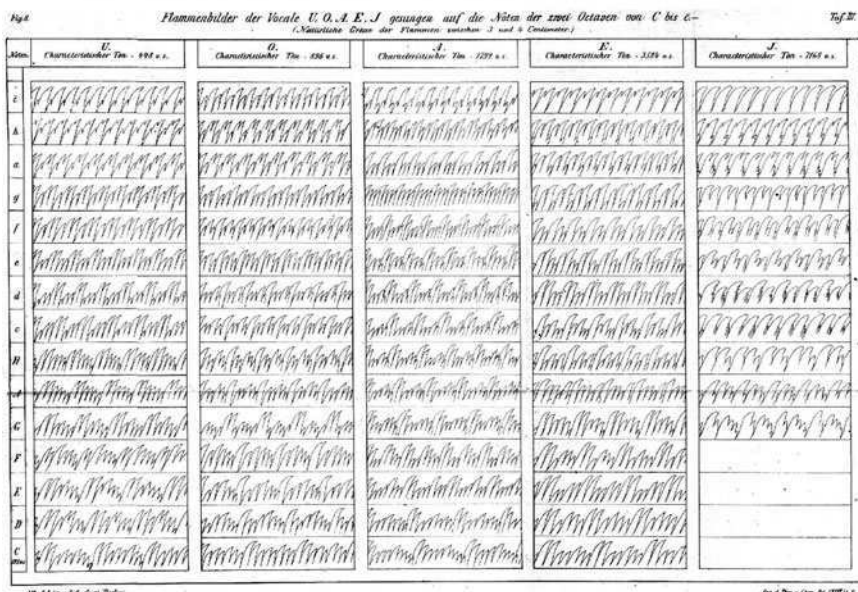 Fig 8. Flammenbilder der Vocale U. O. A. E. J gesungen auf die Noten der zwei Octaven von C bis c Taf. III.
(Natürliche Grösse der Flammen zwischen 3 und 4 Centimeter.)
Noten U. O. A. E. J.
Characteristischer Ton - 448 v.s. Characteristischer Ton - 896 v.s. Characteristischer Ton - 1792 v.s. Characteristischer Ton - 3584 v.s. Characteristischer Ton - 7168 v.s.
c
h
a
g
f
e
d
c
H
A
G
F
E
D
C